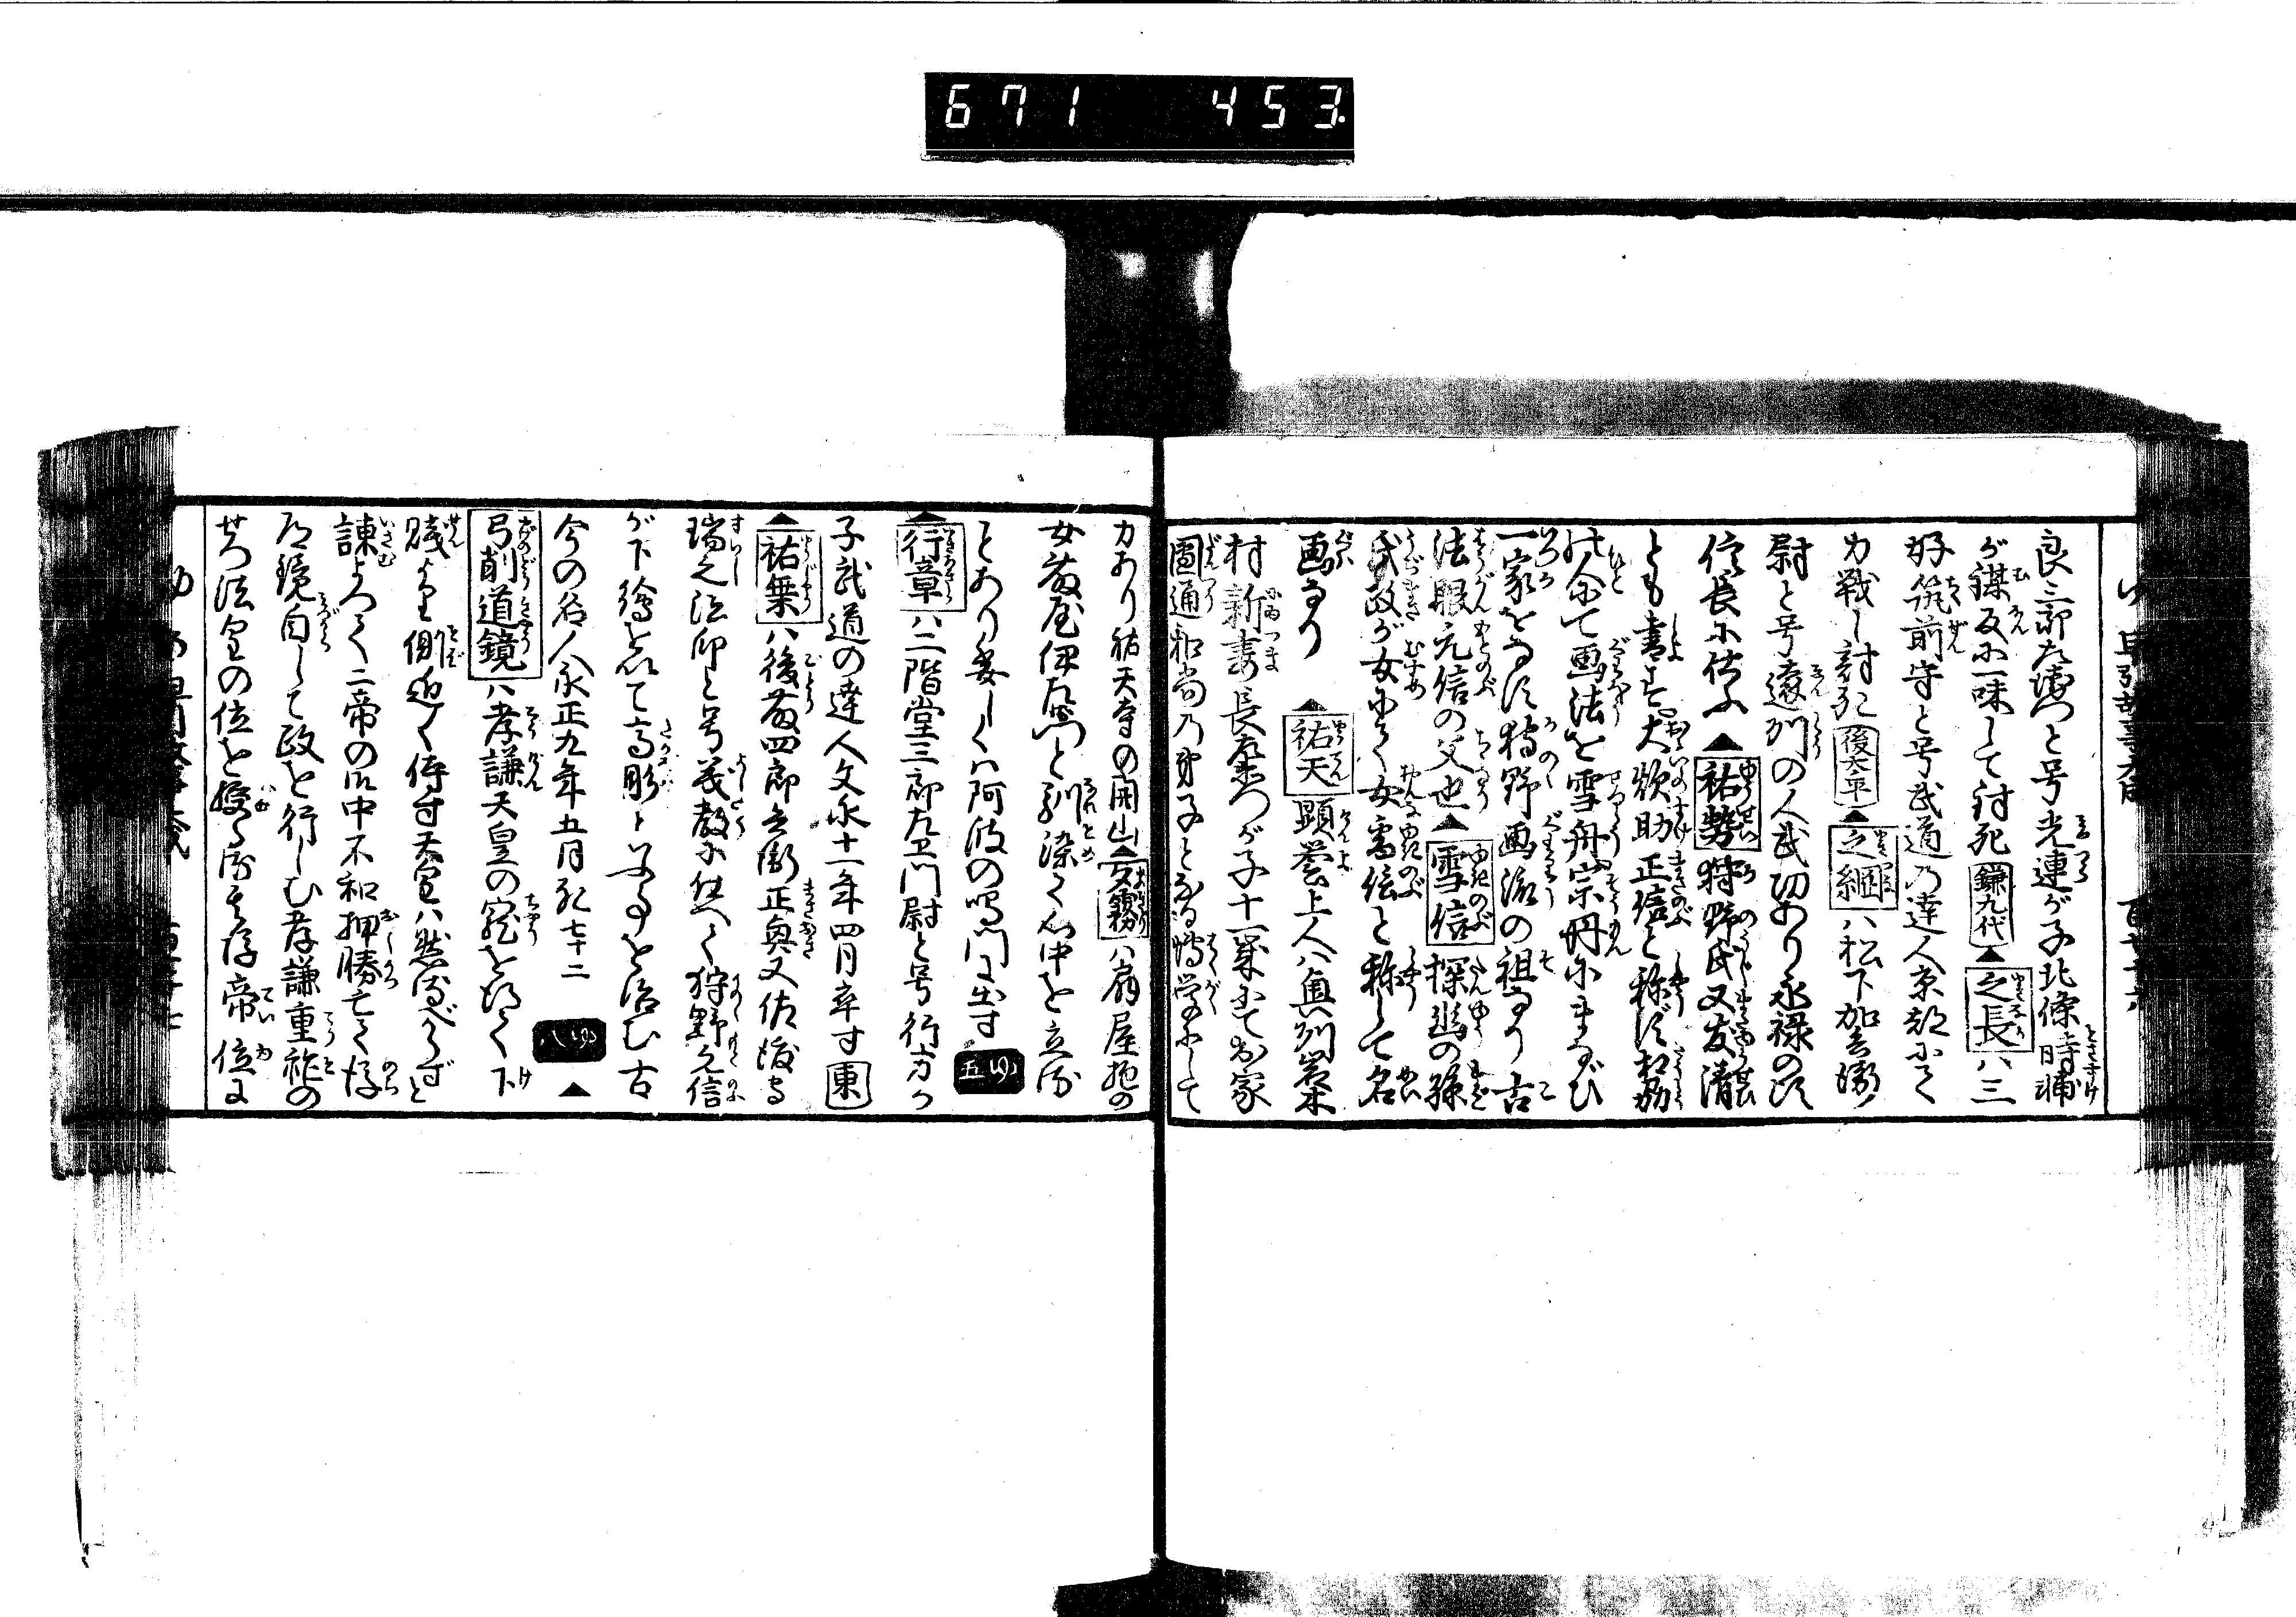 671 453.
良三郎左衛門と号光連が子北條時輔
が謀反に一味して討死 鎌九代 ▲之長ハ三
好筑前守と号武道の達人京都にて
力戦し討死 後太平 ▲之綱ハ松下加兵衛
尉と号遠州の人武功あり永禄の頃
信長に仕ふ ▲祐勢狩野氏又友清
とも書す大炊助正信と称す相劦
一家をなす狩野画流の祖なり古
法眼元信の父也 ▲雪信探幽の孫
氏政が女にて女雪信と称して名
画なり ▲祐天顕誉上人ハ奥州岩木
村新妻長左衛門が子十一歳にて出家
圓通和尚乃弟子となる博学にして
力あり祐天寺の開山 ▲夕霧ハ扇屋抱の
女藤屋伊左衛門と馴染て心中を立る
とあり委しくハ阿波の鳴門に出す 五ゆ
▲行章ハ二階堂三郎左衛門尉と号行方カ
子武道の達人文永十一年四月卒す 東
▲祐乗ハ後藤四郎兵衛正奥又佑後
瑞之法印と号義教に仕へて狩野元信
が下繪を以て高彫といふ事を始む古
今の名人永正九年五月死七十二 八ゆ ▲
弓削道鏡ハ孝謙天皇の寵を得て下
賤より側近く侍す天皇ハ然るべからずと
諌よつて二帝の御中不和押勝亡て後
道鏡自して政を行しむ孝謙重祚の
せつ法皇の位を授る后を淳帝位に